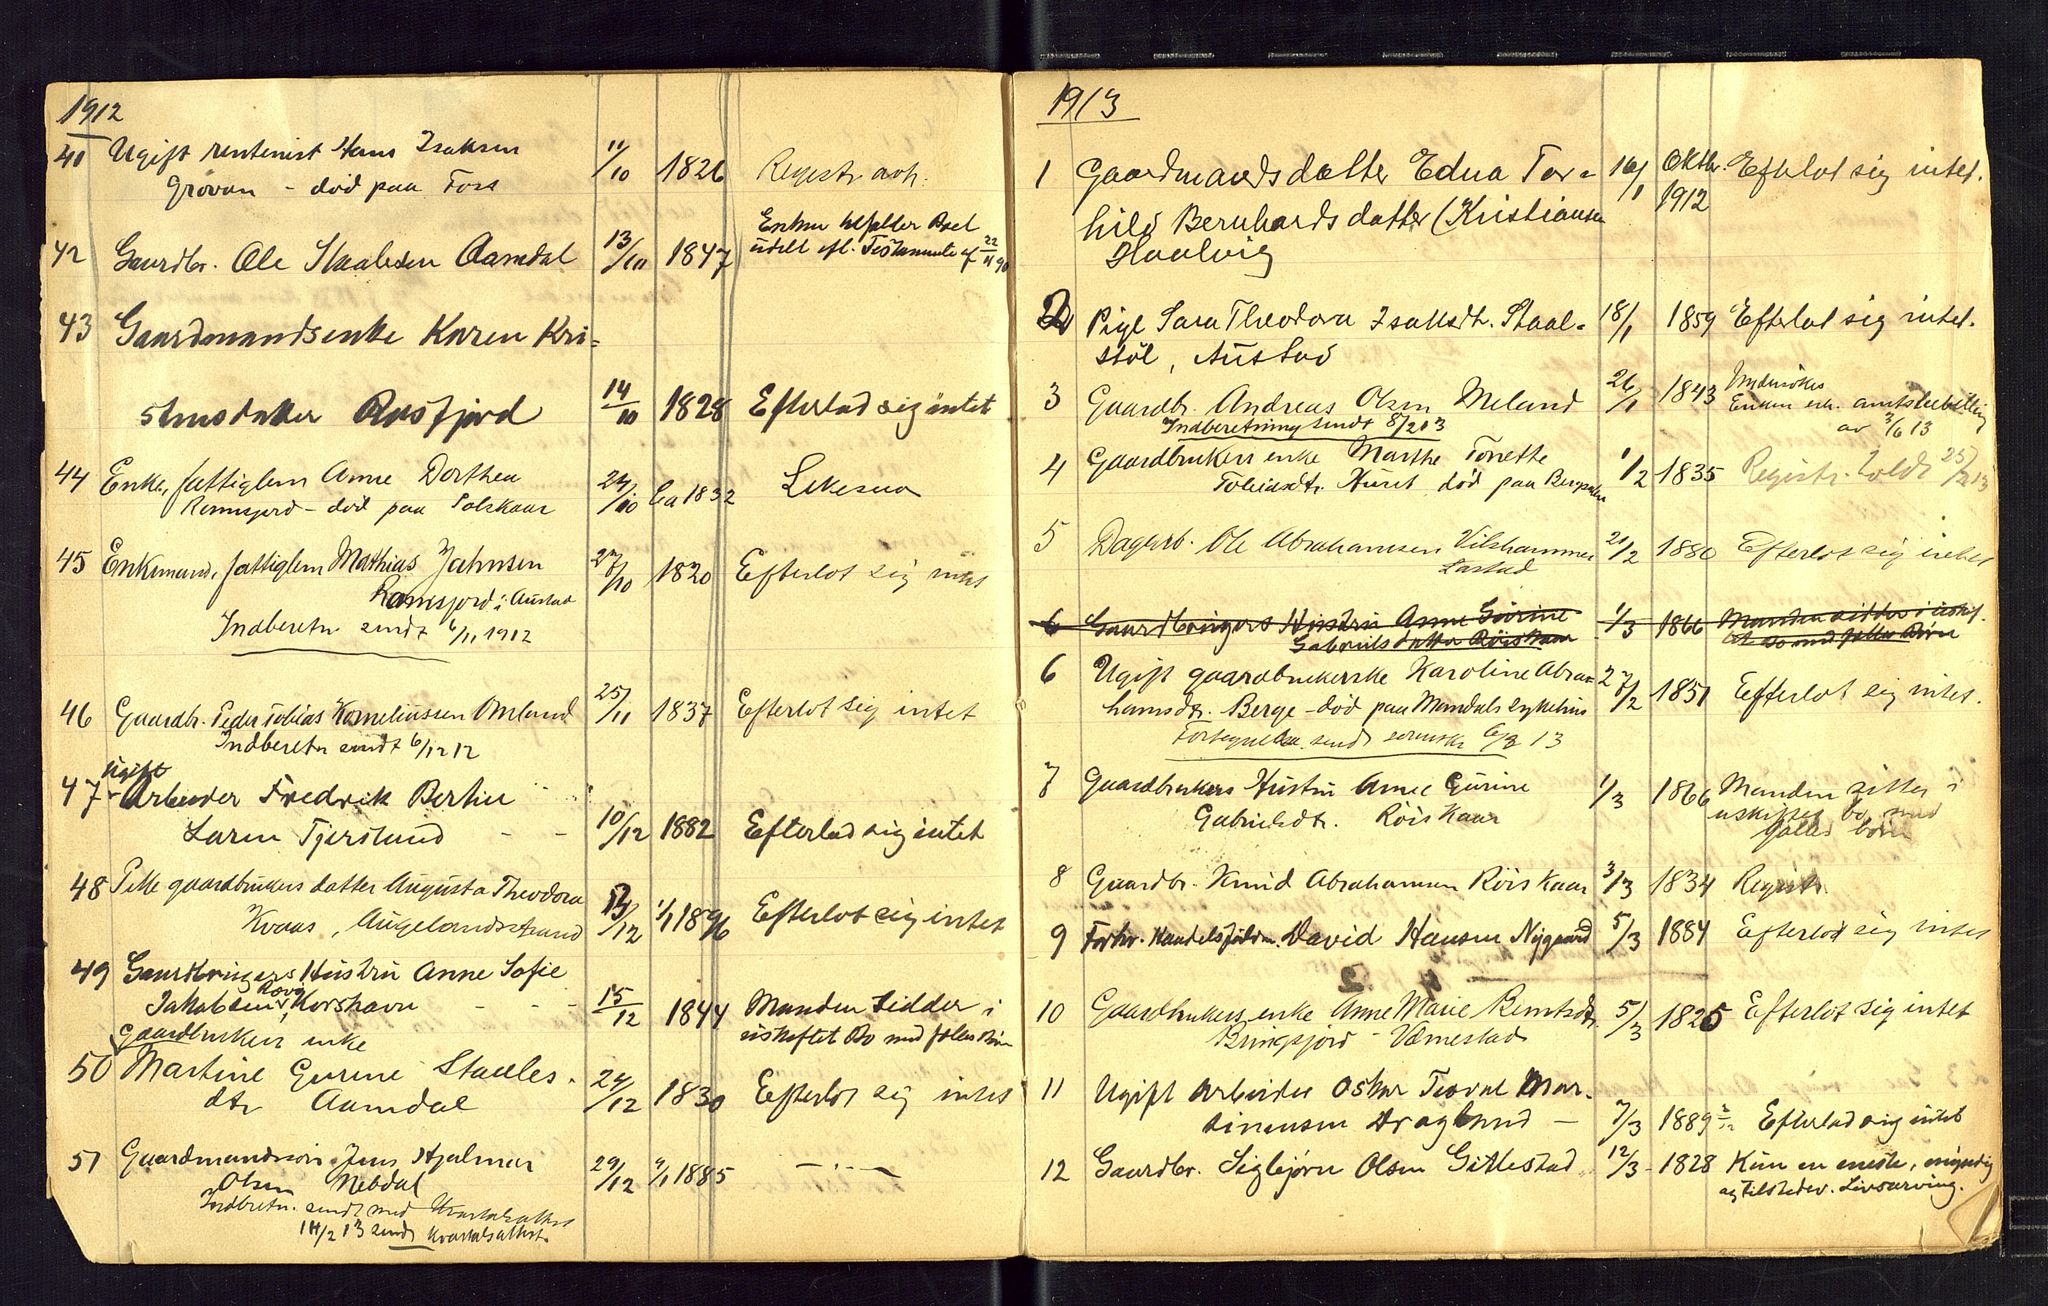 1912
41 Ugift rentenist Hans Isaksen 11/10 1826 Registr. avh.
Grovan - død paa Foss
42 Gaardbr. Ole Staalesen Aamdal 13/10 1847 Enken beholder Boet
udelt efl. Testamente af 22/11 90
43 Gaardmandsenke Karen Kri-
stensdatter Rosfjord 14/10 1828 Efterlad sig intet
44 Enke, fattiglem Anne Dorthea 24/10 Ca 1832 Likesaa
Romsjord - død paa Solskaar
45 Enkemand, fattiglem Mathias Jahnsen 27/10 1820 Efterlot sig intet
Ramsjord i Austad
Indberetn sendt 6/11 1912
46 Gaardbr. Peder Tobias Korneliussen Omland 25/11 1837 Efterlot sig intet
Indberetn sendt 6/12 12
47 Ugift
Arbeider Fredrik Bertin
Larsen Tjørslund - - 10/12 1882 Efterlad sig intet
48 Pike gaardbrukers datter Augusta Theodora 13/12 1/1 1896 Efterlot sig intet
Kvaas, Augelandsstrand
49 Gaardbrugers Hustru Anne Sofie
Jakobsen, Korshavn - - - 15/12 1844 Manden sidder i
uskiftet Bo med fælles Børn
50 Gaardbrukers enke
Martine Gurine Staales- 24/12 1830 Efterlot sig intet
dtr Aamdal
51 Gaardmandssøn Jens Hjalmar 29/12 9/1 1885 - · -
Olsen Nebdal
Indbretn. sendt med Kvartalsattest
14/2 13 sendt Kvartalsattest
1913
1 Gaardmandsdatter Edna Tor- 16/1 Oktbr. 1912 Efterlot sig intet.
hild Bernhardsdatter (Kristiansen
Haalvig
2 Pige Sara Theodora Isaksdtr. Staal- 18/1 1859 Efterlot sig intet.
støl, Austad
3 Gaardbr. Andreas Olsen Meland 26/1 1843 Undersøkes
Enken erh. amtsbevilling
av 3/6 13
Indberetning sendt 8/2 13
4 Gaardbrukers enke Marthe Tonette 1/2 1835 Registr. holdt 25/2 13
Tobiasdtr Huset, død paa Bergsaker
5 Dagarb. Ole Abrahamsen Vilshammer 21/2 1880 Efterlot sig intet
Lastad
6 Gaardbrugers Hustru Anne Gurine 1/3 1866 Manden sidder i uskif-
tet Bo med fælles Børn
Gabrielsdatter Røiskaar
6 Ugift gaardbrukerske Karoline Abra- 27/2 1851 Efterlot sig intet.
hamsdtr. Berge - død paa Mandals sykehus
Fortegnelse sendt sorenskr 6/3 13
7 Gaardbrukers Hustru Anne Gurine 1/3 1866 Manden sitter i
uskiftet bo med
fælles børn
Gabrielsdtr. Røiskaar
8 Gaardbr. Knud Abrahamsen Røiskaar 3/3 1834 Registr.
9 Forhv. Handelsfuldm. David Hansen Nygaard 5/3 1884 Efterlod sig intet
10 Gaardbrukers enke Anne Marie Berntsdtr. 5/3 1825 Efterlot sig intet
Bringsjord - Værnestad
11 Ugift Arbeider Oskar Teodal Mar-
sinensen Dragland - 7/3 1889 Efterlad sig intet
12 Gaardbr. Sigbjørn Olsen Gitlestad 12/3 1828 Kun en eneste, myndig
og tilstedev. Livsarving.